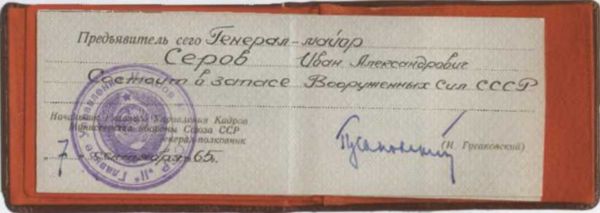 Предъявитель сего Генерал-майор
Серов Иван Александрович
Состоит в запасе Вооруженных Сил СССР
Начальник Главного Управления Кадров
Министерства обороны Союза ССР
генерал-полковник
Гусаковский (И. Гусаковский)
7 января 65г.
Главное управление кадров